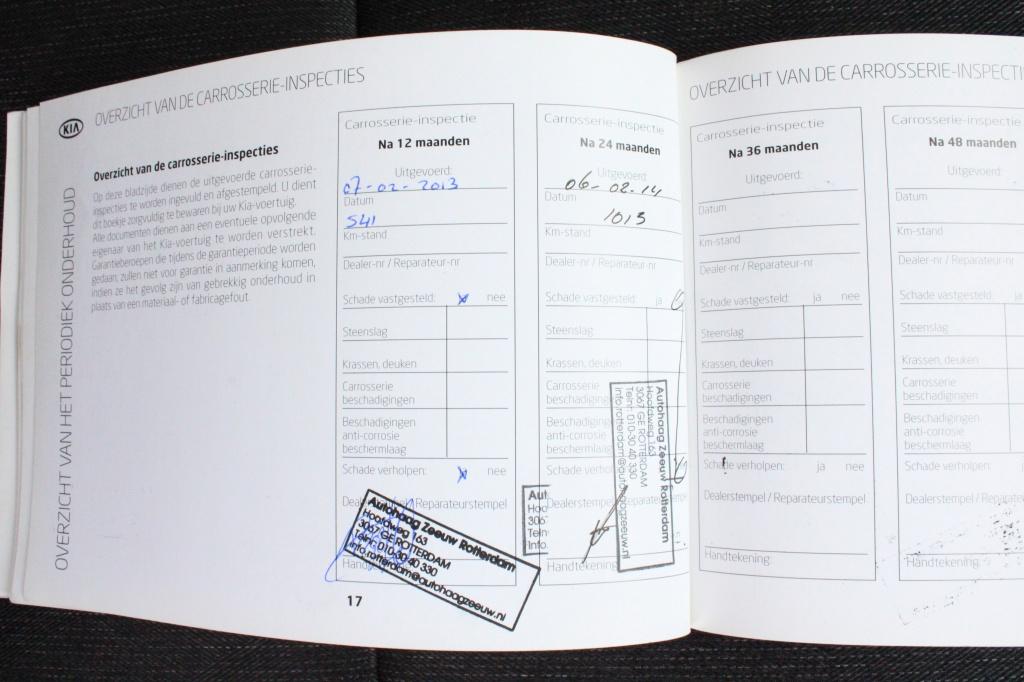 KIA
OVERZICHT VAN DE CARROSSERIE-INSPECTIES
OVERZICHT VAN HET PERIODIEK ONDERHOUD
Overzicht van de carrosserie-inspecties
Op deze bladzijde dienen de uitgevoerde carrosserie-
inspecties te worden ingevuld en afgestempeld. U dient
dit boekje zorgvuldig te bewaren bij uw Kia-voertuig.
Alle documenten dienen aan een eventuele opvolgende
eigenaar van het Kia-voertuig te worden verstrekt.
Garantieberoepen die tijdens de garantieperiode worden
gedaan, zullen niet voor garantie in aanmerking komen,
indien ze het gevolg zijn van gebrekkig onderhoud in
plaats van een materiaal- of fabricagefout.
Carrosserie-inspectie
Na 12 maanden
Uitgevoerd:
07-02-2013
Datum
541
Km-stand
Dealer-nr / Reparateur-nr
Schade vastgesteld: nee
Steenslag
Krassen, deuken
Carrosserie
beschadigingen
Beschadigingen
anti-corrosie
beschermlaag
Schade verholpen: nee
Reparateurstempel
Autohaag Zeeuw Rotterdam
Hoofdweg 163
3067 GE ROTTERDAM
Telnr: 010-30 40 330
info.rotterdam@autohaagzeeuw.nl
17
Carrosserie-inspectie
Na 24 maanden
Uitgevoerd:
06-02-14
Datum
1013
Km-stand
Dealer-nr / Reparateur-nr
Schade vastgesteld: ja
Steenslag
Krassen, deuken
Carrosserie
beschadigingen
Beschadigingen
anti-corrosie
beschermlaag
Schade verhol
Dealerstempel / Reparateurstempel
Aut
Hoo
306
Teln
Info
Autohaag Zeeuw Rotterdam
Hoofdweg 163
3067 GE ROTTERDAM
Telnr: 010-30 40 330
info.rotterdam@autohaagzeeuw.nl
Handtekening
OVERZICHT VAN DE CARROSSERIE-INSPECTI
Carrosserie-inspectie
Na 36 maanden
Uitgevoerd:
Datum
Km-stand
Dealer-nr / Reparateur-nr
Schade vastgesteld: ja nee
Steenslag
Krassen, deuken
Carrosserie
beschadigingen
Beschadigingen
anti-corrosie
beschermlaag
Schade verholpen: ja nee
Dealerstempel / Reparateurstempel
Handtekening:
Carrosserie-inspectie
Na 48 maanden
Uitgevoerd:
Datum
Km-stand
Dealer-nr / Reparateur-nr
Schade vastgesteld: ja
Steenslag
Krassen, deuken
Carrosserie
beschadigingen
Beschadigingen
anti-corrosie
beschermlaag
Schade verholpen: ja
Dealerstempel / Reparateurst
Handtekening: